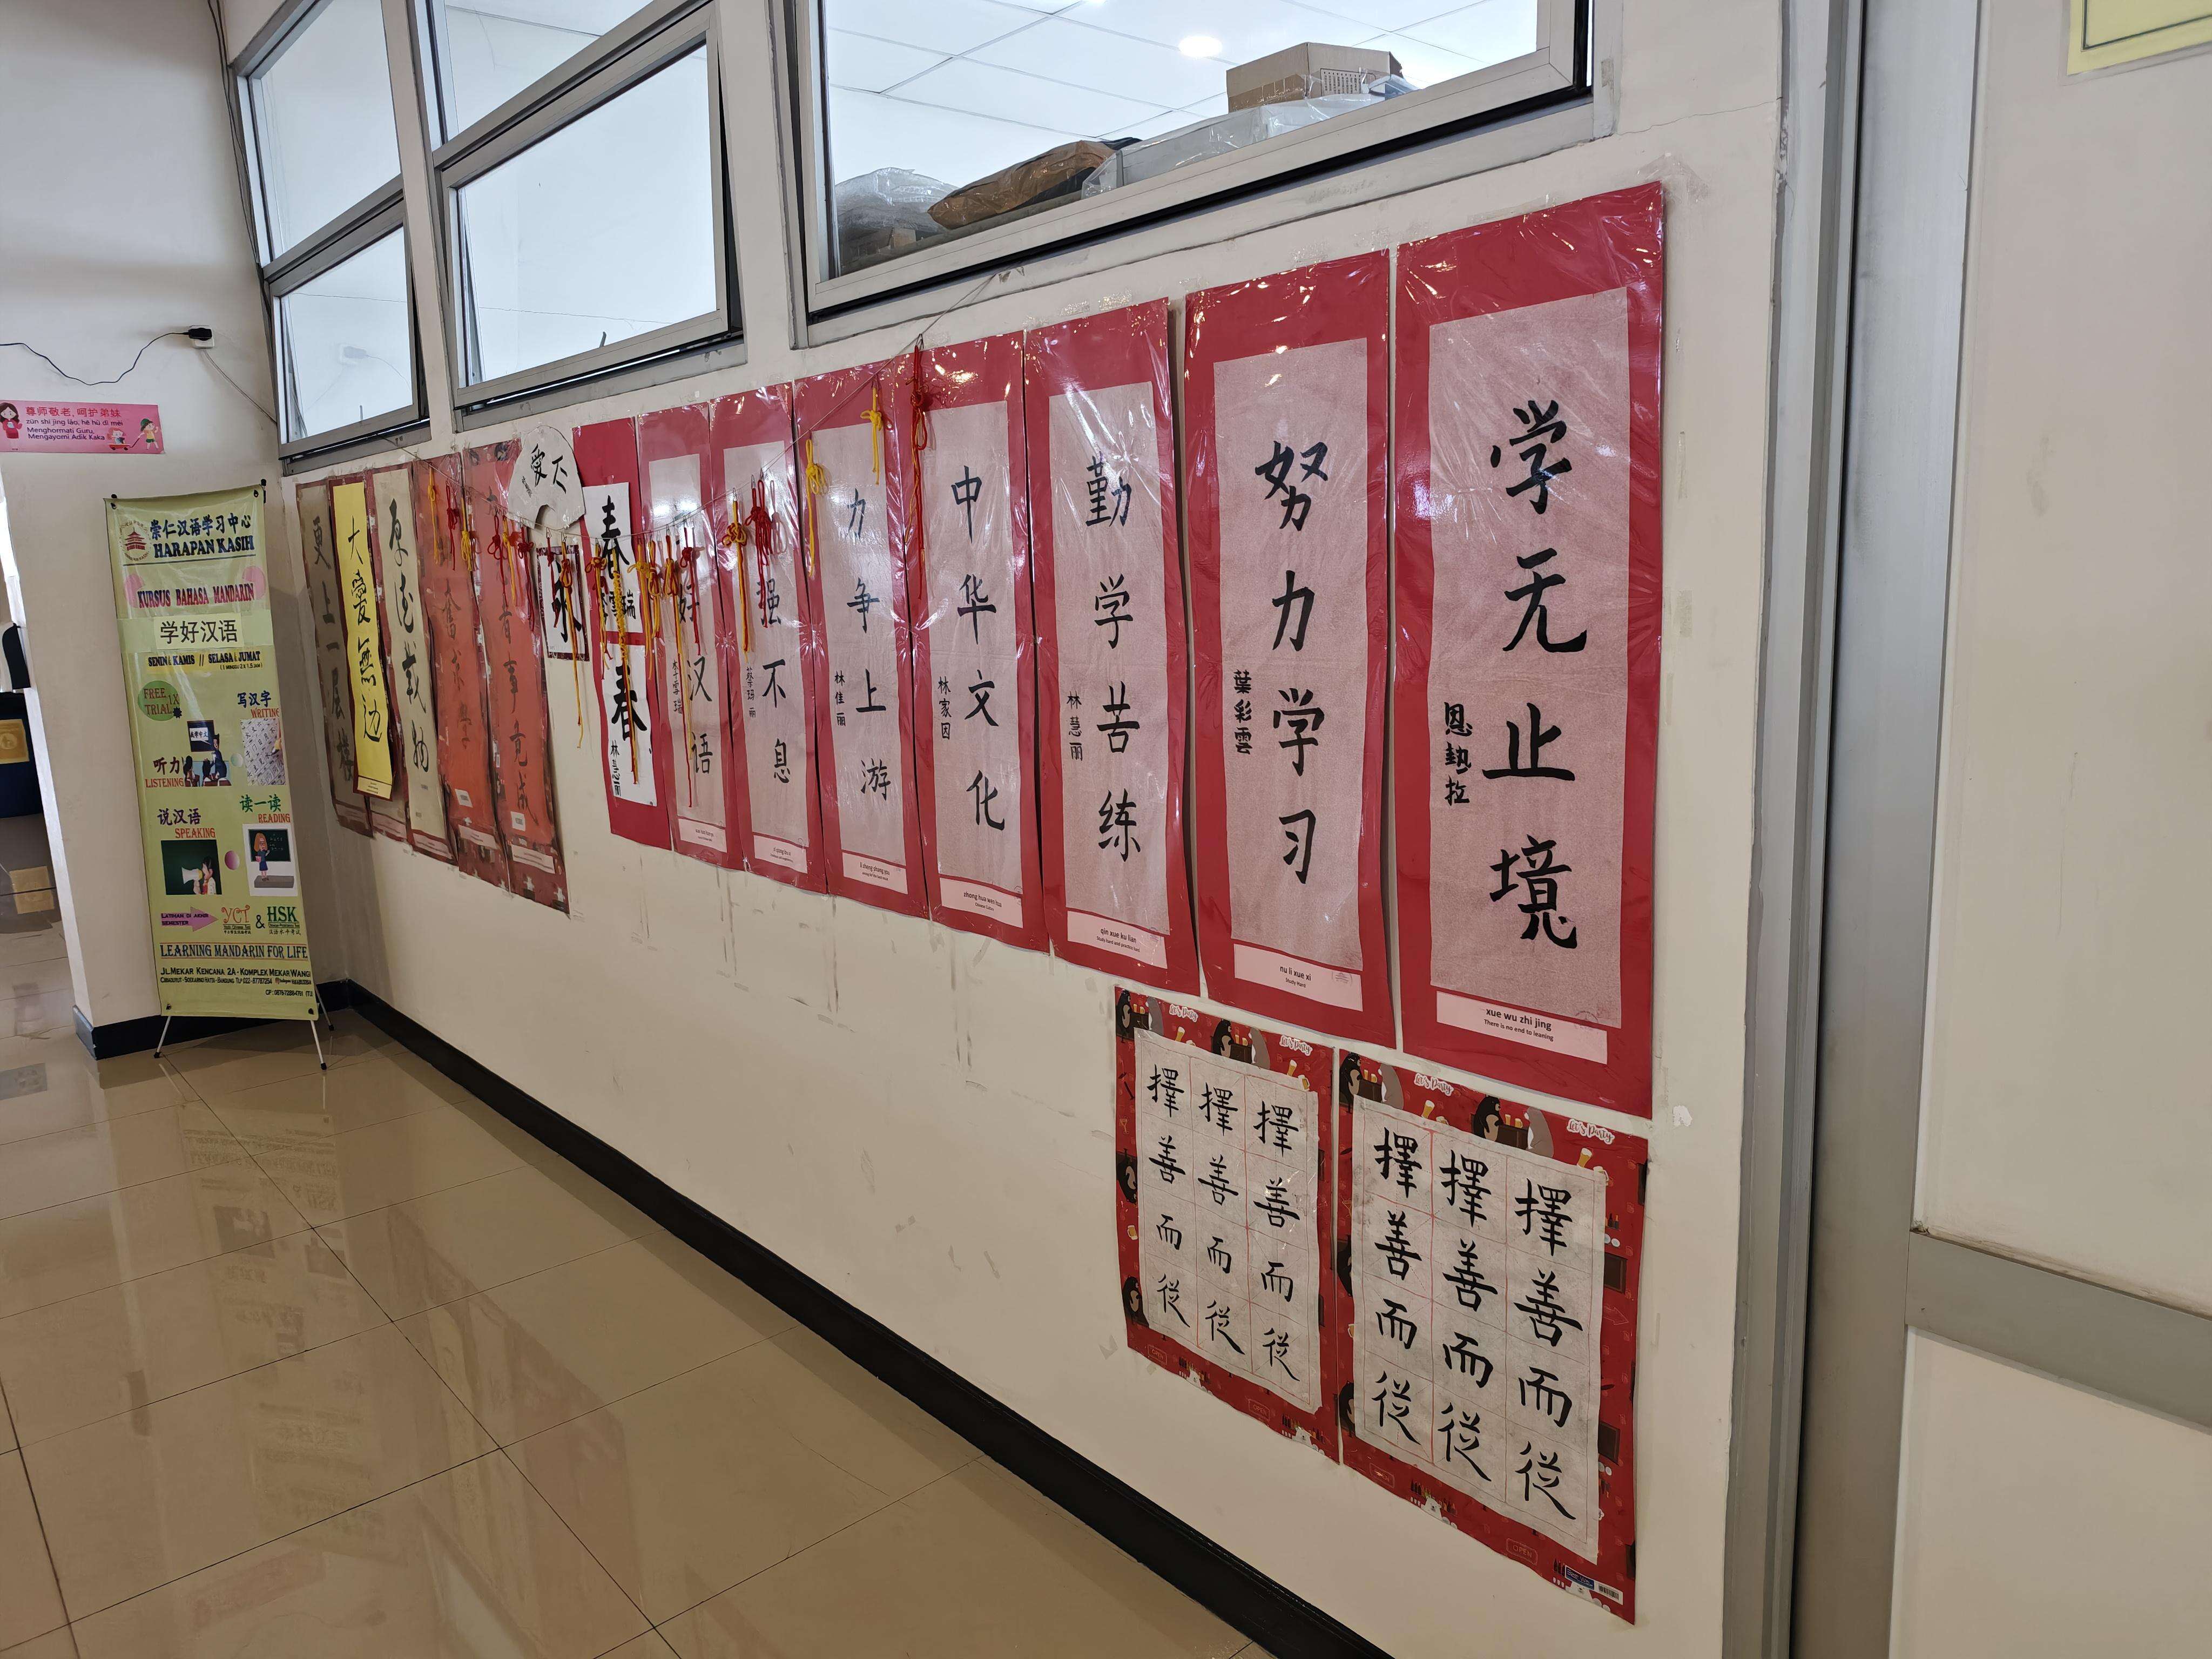 尊师敬老，呵护弟妹
zūn shī jìng lǎo, hē hù dì mèi
Menghormati Guru,
Mengayomi Adik Kaka
崇仁汉语学习中心
HARAPAN KASIH
KURSUS BAHASA MANDARIN
学好汉语
SENIN & KAMIS // SELASA & JUMAT
FREE 1X
TRIAL
写汉字
WRITING
听力
LISTENING
说汉语
SPEAKING
读一读
READING
LATIHAN DI AKHIR
SEMESTER
YCT & HSK
LEARNING MANDARIN FOR LIFE
JL.MEKAR KENCANA 2A - KOMPLEK MEKAR WANGI
更上一层楼
大愛無边
厚德载物
奮
学
者事竟成
爱
永
春
春
林慧丽
好汉语
强不息
力争上游
林佳丽
li zheng shang you
中华文化
林家因
zhong hua wen hua
Chinese Culture
勤学苦练
林慧丽
qin xue ku lian
Study hard and practice hard
努力学习
葉彩雲
nu li xue xi
Study Hard
学无止境
恩
拉
xue wu zhi jing
There is no end to leaning
Let's Party
Let's Party
擇善而從
擇善而從
擇善而從
Let's Party
Let's Party
擇善而從
擇善而從
擇善而從
OPEN
OPEN